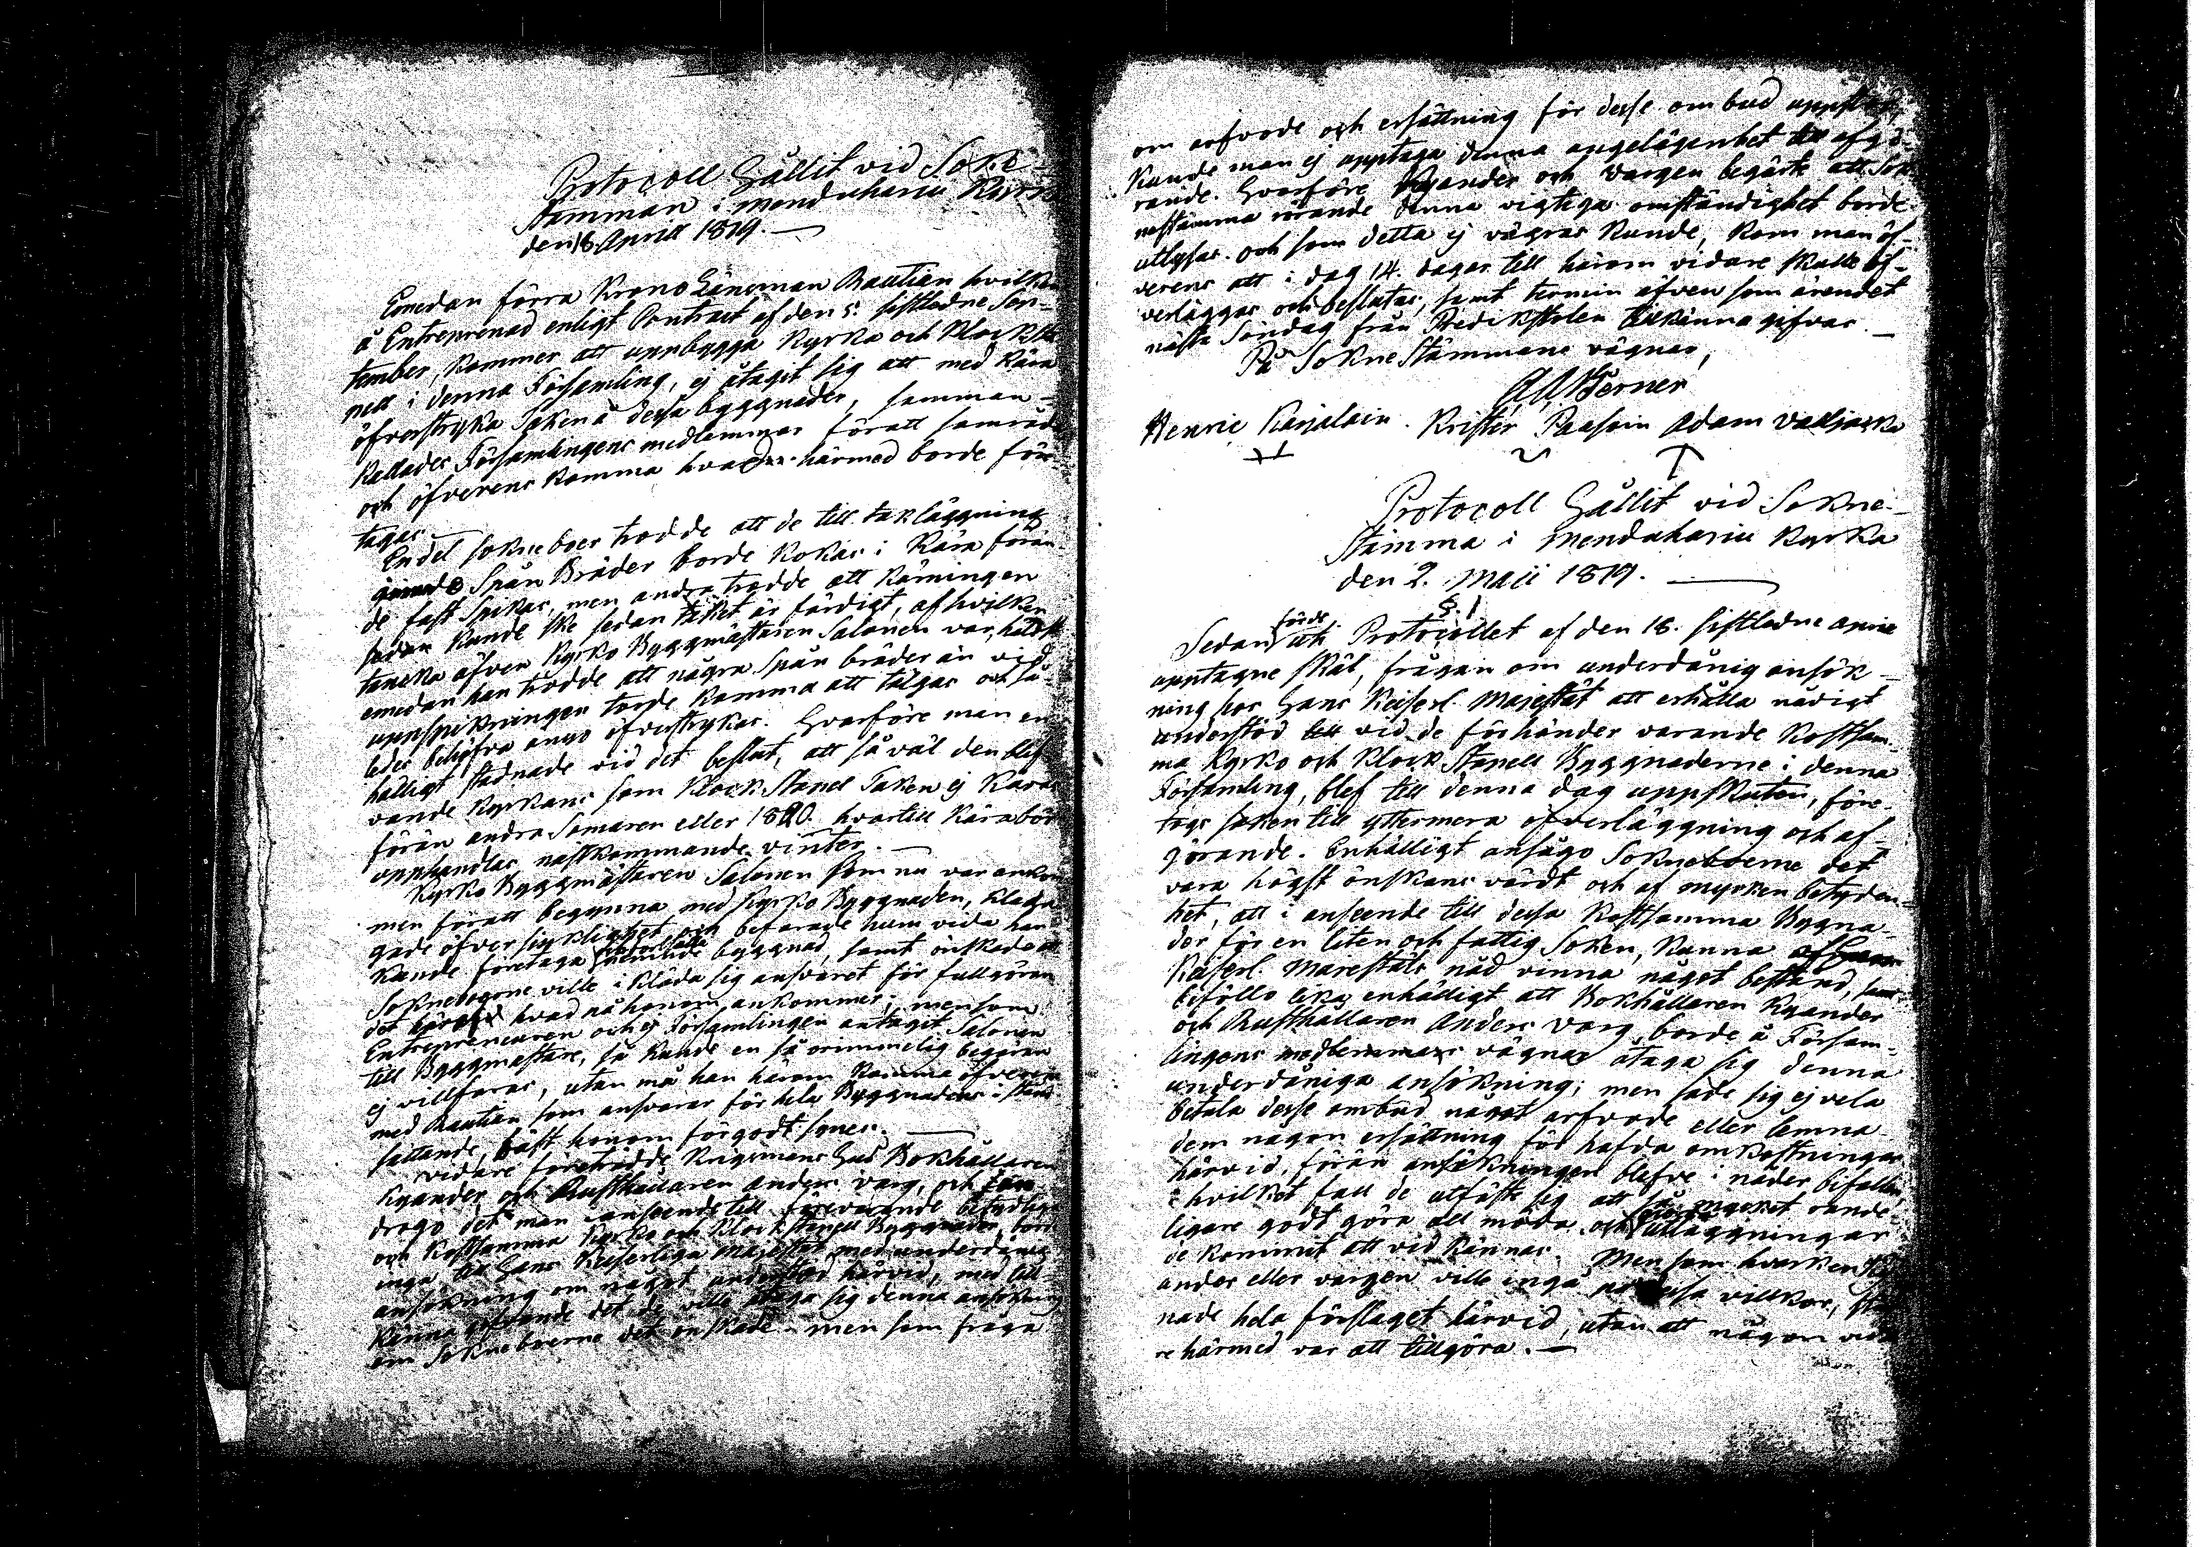 Protocoll Hållit vid Sokne-
stämman i Menduharju Kyrka
den 18 Aprill 1819.
Emedan förra Krono Länsman Bautian hvilken
å Entreprenad enligt Contract af den 5. sistledne Sep-
tember, kommer att uppbygga Kyrka och Klocksta
pell i denna Församling, ej åtagit sig att med kära
öfverstryka Taken å dessa byggnader, samman-
kallades Församlingens medlemmar för att samråda
och öfverens komma hvad härmed borde före
tagas.
En del Sokneboer trodde att de till takläggning
Spån Bräder borde kokas i kära förän
de fast spikas, men andra trodde att käringen
sedan kunde ske sedan taket är färdigt, af hvilken
tancka äfven Kyrko Byggmästaren Salonen var,
emedan han trodde att några spån bräder än vid
uppspikningen torde komma att tälgas och så
ledes behöfva ånyo öfverstrykas. Hvarföre man en
hälligt stadnade vid det beslut, att så väl den blif
vande Kyrkans som Klock Stapel Taken ej käras
förän andra Somaren eller 1820. hvartill kära bör
upphandlas nästkommande vinter.
Kyrko Byggmästaren Salonen som nu var ankom
men för att begynna med Kyrko Byggnaden, klada
gade öfver sjuklighet och befarade hum vida han
kunde företaga byggnad, samt önskade att
Sokneboerne ville i kläda sig ansvaret för fullgöran
det hvad på honom ankommer; men som
Entrepreneuren och ej Församlingen antagit Salonen
till Byggmästare, så kunde en så orimmelig begäran
ej villfaras, utan må han härom komma öfverens
med Bautian som ansvarar för hela Byggnadens i stånd
sättande, bäst honom förgodt synes.
Vidare företrädde Krigsmans Hus Bokhållaren
Kyander och Rusthållaren Anders Varg, och
drogo det man i anseende till förevarande betydliga
och kostsamma Kyrko och Klockstapell Byggnader, borde
ingå till Hans Keiserliga Majestät med underdånig
ansökning om något understöd härvid, med till-
känna gifvande det de ville åtaga sig denna ansökning
om Sokneboerne det önskade – men som fråga
om arfvode och ersättning för desse ombud uppstod,
kunde man ej upptaga denna angelägenhet till afgö-
rande. Hvarföre Kyander och Vargen begärte att Sok
nestämma rörande denna vigtiga omständighet borde
utlysas. och som detta ej vägras kunde, kom man öf-
verens att i dag 14. dagar till härom vidare skulle öf-
verläggas och beslutas, samt termin äfven som ärendet
nästa Söndag från Predikstolen tillkänna gifvas. –
På SokneStämmans vägnar,
Henric Karjalain. Krister Paasoin Adam
Protocoll Hållit vid Sokne-
Stämma i Menduharju Kyrka
den 2. Maji 1819.
§. 1
Sedan uti Protocollet af den 18. sistledne April
förde
upptagne skäl, frågan om underdånig ansök-
ning hos Hans Keiserl. Majestät att erhålla nådigt
understöd vid de förhänder varande kostsam-
ma Kyrko och Klock Stapell Byggnaderne i denna
Församling, blef till denna dag uppskuten, före-
togs saken till yttermera öfverläggning och af-
görande. Enhälligt ansågo Sokneboerne det
vara högst önskans värdt och af mycken betyden-
het, att i anseende till dessa kostsamma Bygna-
der för en liten och fattig Soken, kunna af
Keiserl. Majestäts nåd vinna något bestånd, samt
biföllo lika enhälligt att Bokhållaren Kyander
och Rusthållaren Anders Varg, borde å Försam-
lingens medlemmars vägnar åtaga sig denna
underdåniga ansökning; men sade sig ej vela
betala desse ombud något arfvode eller lemna
dem någon ersättning för hafda omkostningar
härvid, förän ansökningen blefve i nåder bifallen,
i hvilket fall de utfäste sig att mycket
ligare godt göra all möda och utläggningar
de kommit att vid kännas. Men som hvarken Ky
ander eller Vargen ville ingå på dessa villkor,
nade hela förslaget härvid, utan att någon vida
re härmed var att tillgöra. –